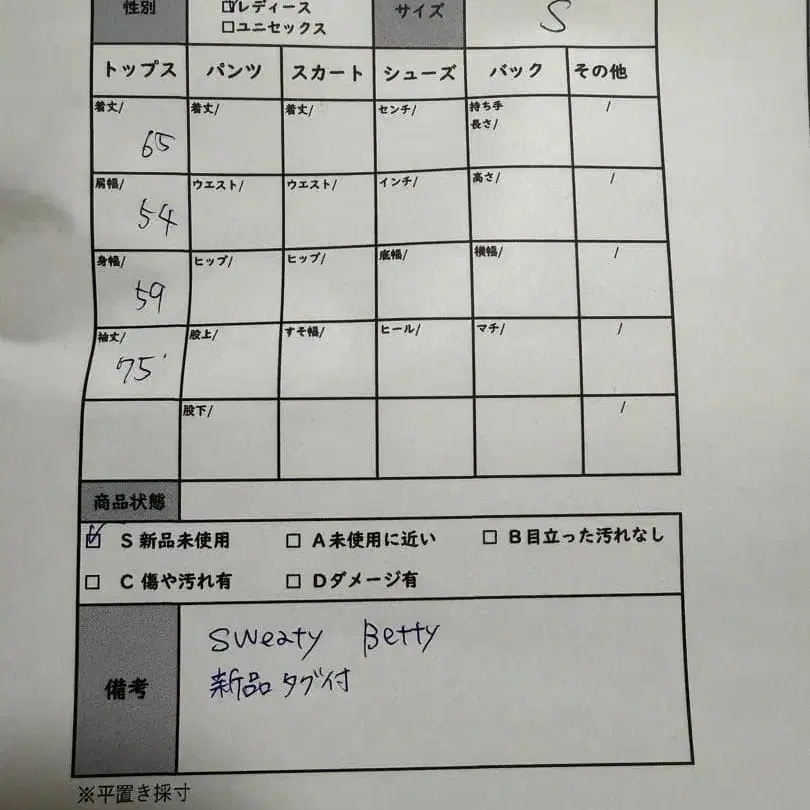 性別 ☑レディース サイズ S
□ユニセックス
トップス パンツ スカート シューズ バック その他
着丈/ 65 着丈/ 着丈/ センチ/ 持ち手長さ/ /
肩幅/ 54 ウエスト/ ウエスト/ インチ/ 高さ/ /
身幅/ 59 ヒップ/ ヒップ/ 底幅/ 横幅/ /
袖丈/ 75 股上/ すそ幅/ ヒール/ マチ/ /
股下/ /
商品状態
☑ S 新品未使用 □ A未使用に近い □ B目立った汚れなし
□ C 傷や汚れ有 □ Dダメージ有
備考
sweaty Betty
新品タグ付
※平置き採寸